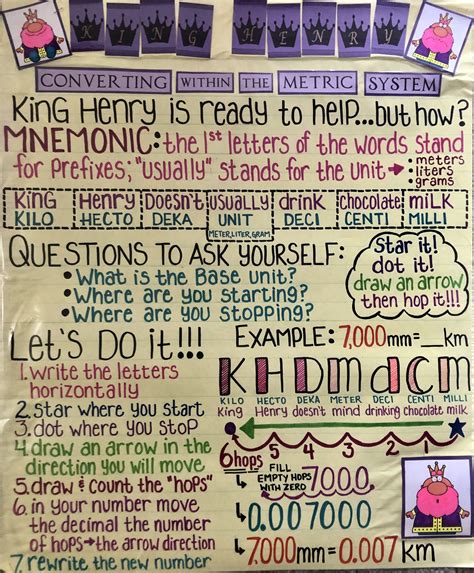 KING HENRY
CONVERTING WITHIN THE METRIC SYSTEM
King Henry is ready to help...but how?
MNEMONIC: the 1st letters of the words stand
for prefixes; "usually" stands for the unit → • meters
• liters
• grams
King Henry Doesn't usually drink chocolate milk
KILO HECTO DEKA UNIT DECI CENTI MILLI
METER, LITER, GRAM
QUESTIONS TO ASK YOURSELF:
• What is the Base unit?
• Where are you starting?
• Where are you stopping?
Star it!
dot it!
draw an arrow
then hop it!!!
LET'S DO it!!!
1. Write the letters
horizontally
2. star where you start
3. dot where you stop
4. draw an arrow in the
direction you will move
5. draw & count the "hops"
6. in your number move
the decimal the number
of hops → the arrow direction
7. rewrite the new number
EXAMPLE: 7,000mm = __km
K H D m d c m
KILO HECTO DEKA METER DECI CENTI MILLI
King Henry doesn't mind drinking chocolate milk
6 hops 5 4 3 2 1
FILL
EMPTY HOPS
WITH ZERO
7000.
↳ 0.007000
↳ 7,000mm = 0.007 km